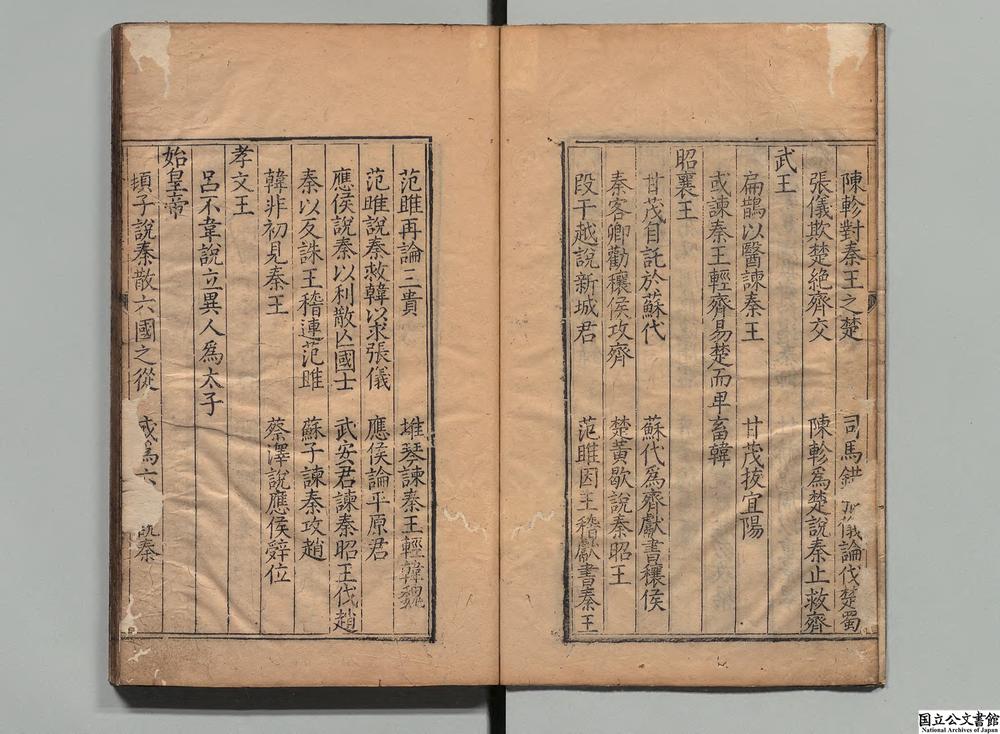 陳軫對秦王之楚 司馬錯 張儀論伐楚蜀
張儀欺楚絶齊交 陳軫爲楚說秦止救齊
武王
扁鵲以醫諫秦王 甘茂拔宜陽
或諫秦王輕齊易楚而卑畜韓
昭襄王
甘茂自託於蘇代 蘇代爲齊獻書穰侯
秦客卿勸穰侯攻齊 楚黃歇說秦昭王
段干越說新城君 范雎因王稽獻書秦王
范雎再論三貴 堆琴諫秦王輕韓魏
范雎說秦救韓以求張儀 應侯論平原君
應侯說秦以利散六國士 武安君諫秦昭王伐趙
秦以反誅王稽連范雎 蘇子諫秦攻趙
韓非初見秦王 蔡澤說應侯辭位
孝文王
呂不韋說立異人爲太子
始皇帝
頊子說秦散六國之從 或爲六 說秦
国立公文書館
National Archives of Japan